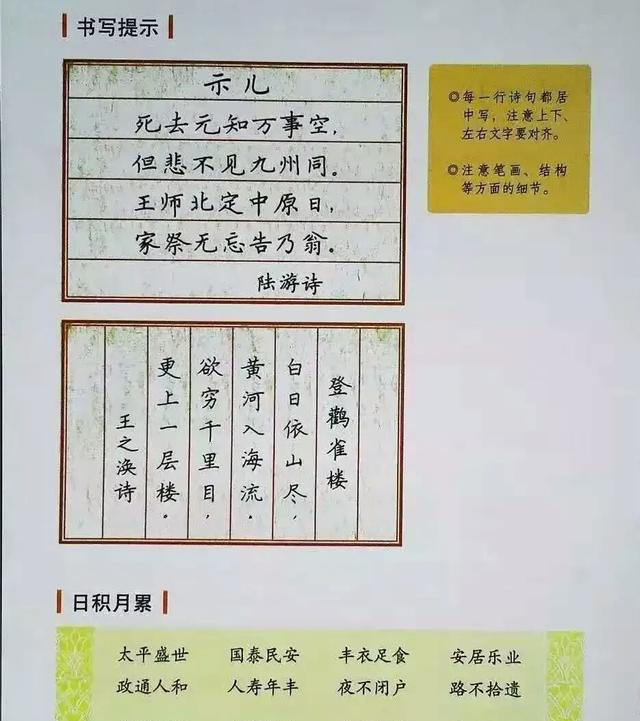 书写提示
示儿
死去元知万事空，
但悲不见九州同。
王师北定中原日，
家祭无忘告乃翁。
陆游诗
◎每一行诗句都居
中写，注意上下、
左右文字要对齐。
◎注意笔画、结构
等方面的细节。
登鹳雀楼
白日依山尽，
黄河入海流。
欲穷千里目，
更上一层楼。
王之涣诗
日积月累
太平盛世 国泰民安 丰衣足食 安居乐业
政通人和 人寿年丰 夜不闭户 路不拾遗